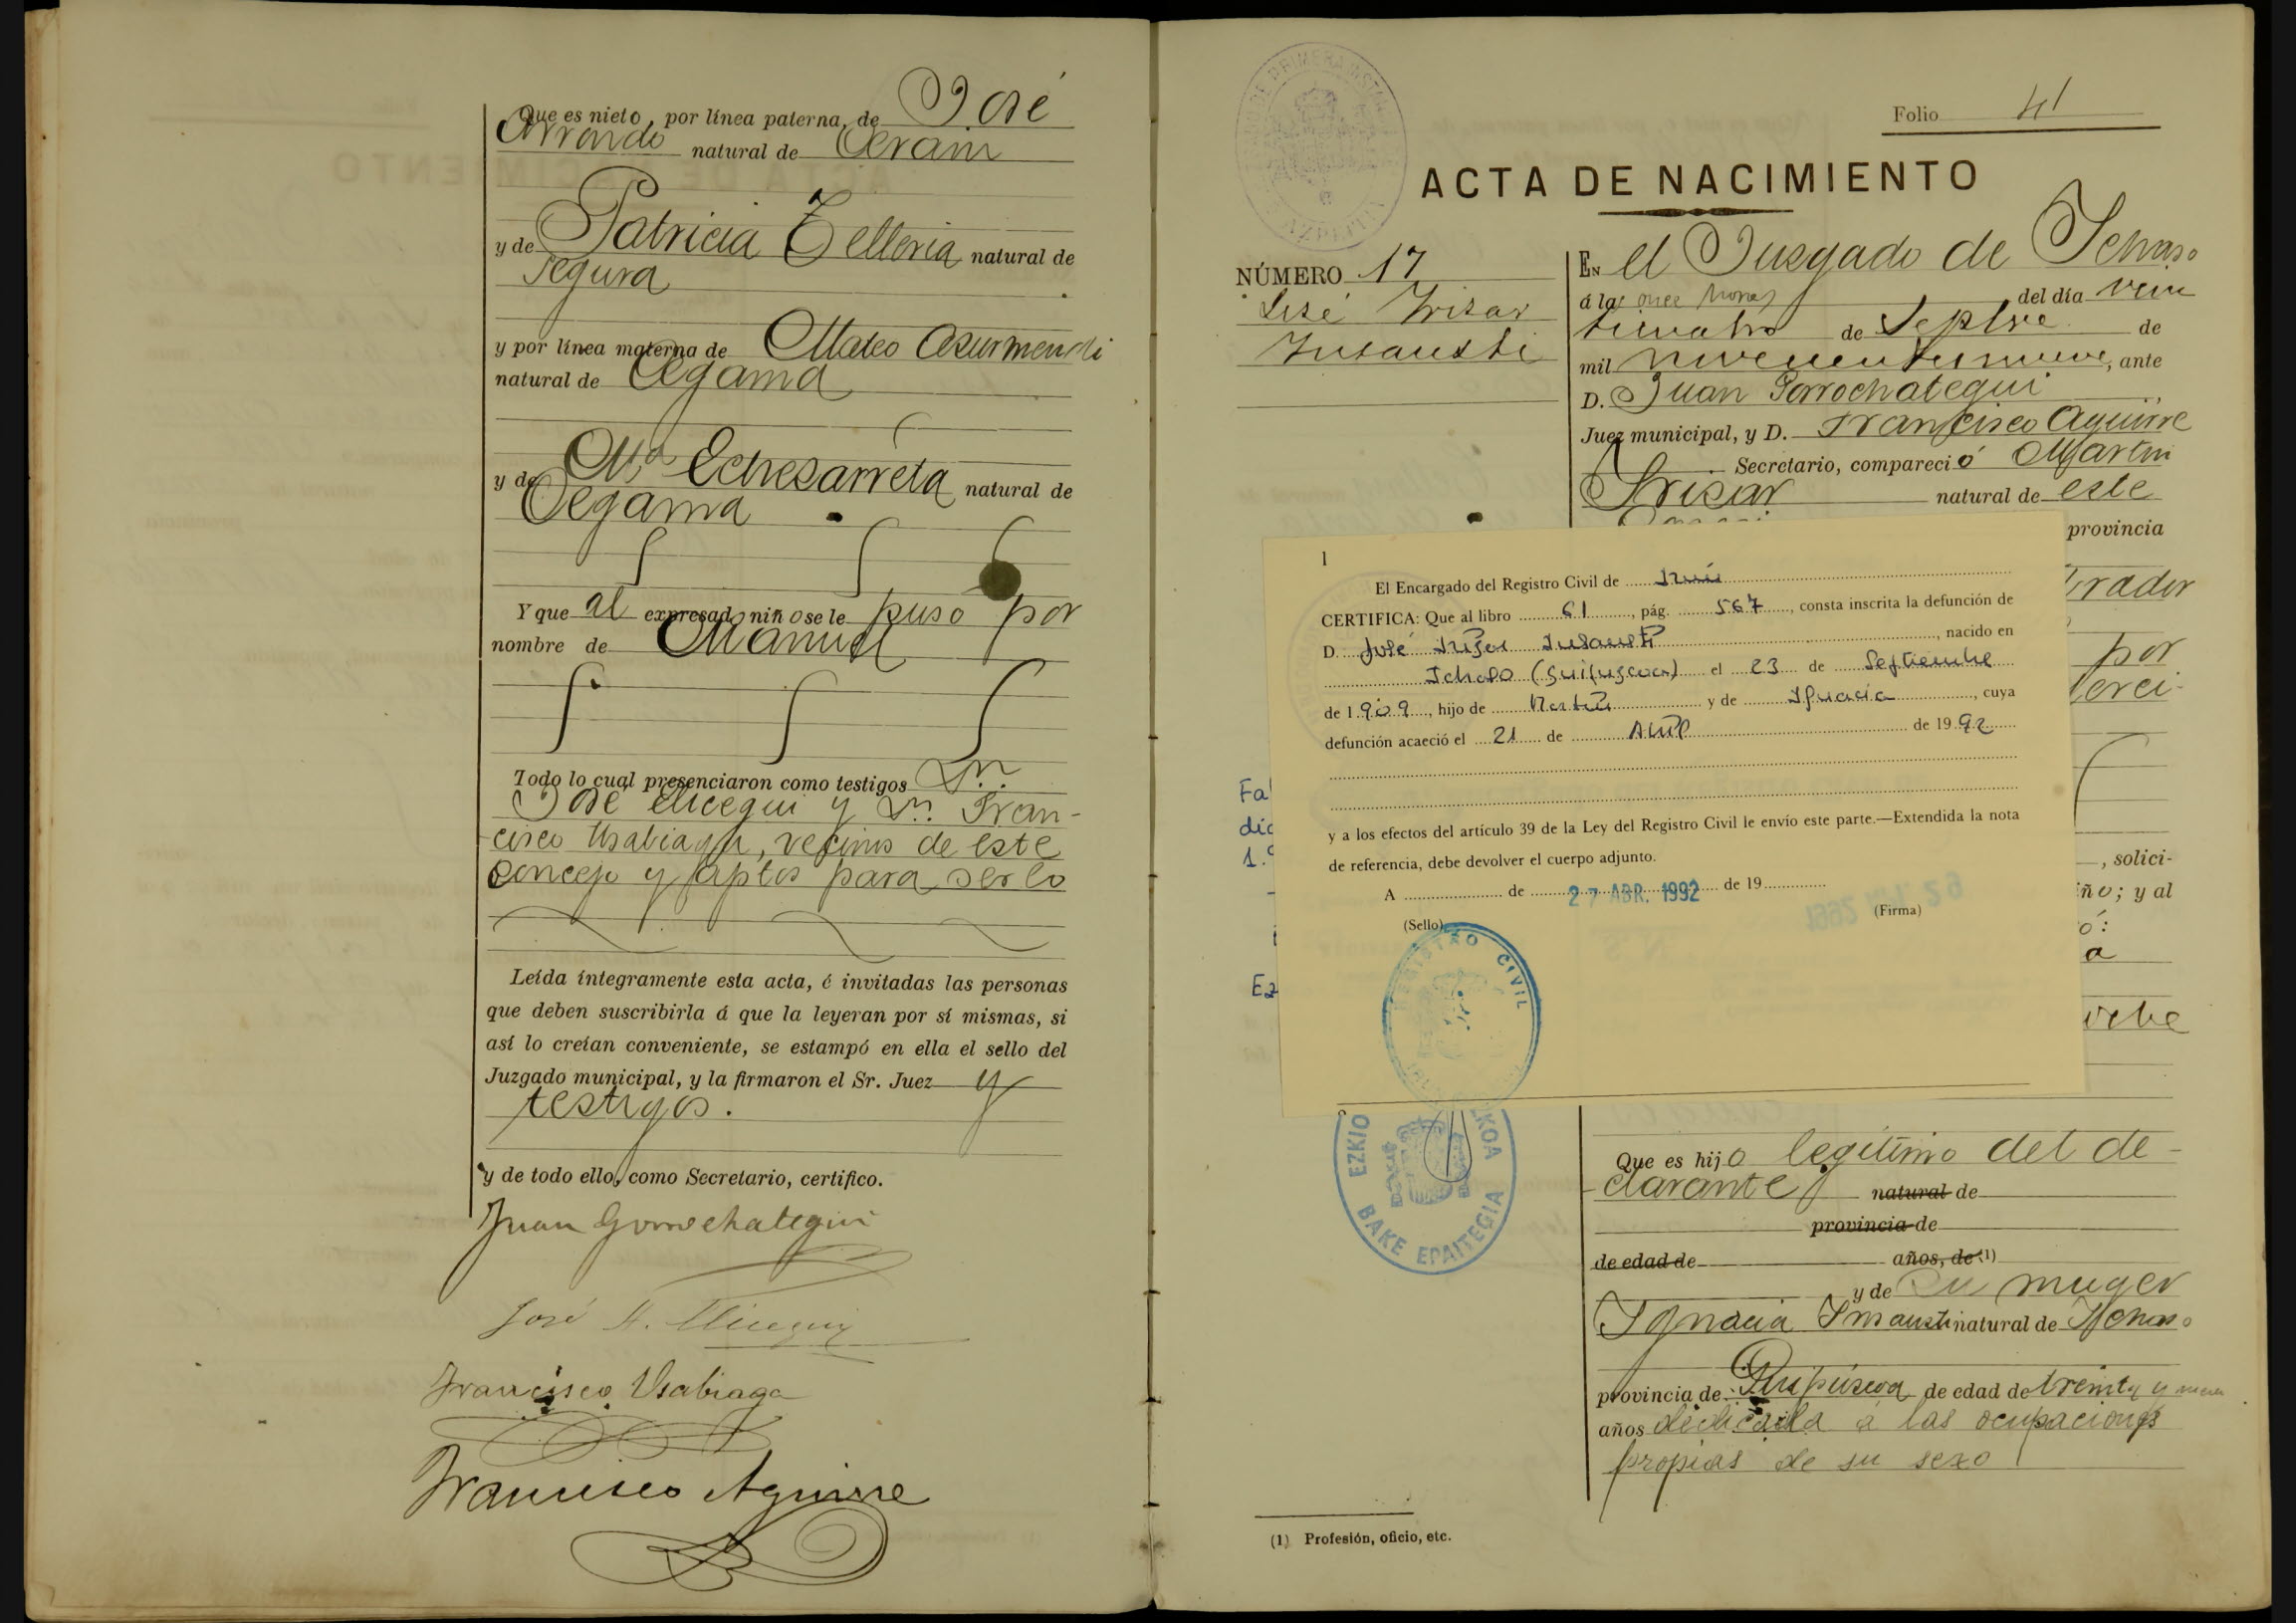 Que es nieto, por línea paterna, de José
Arrondo natural de Cerain
y de Patricia Telleria natural de
Segura
y por línea materna de Mateo Asurmendi
natural de Cegama
y de Mª Echesarreta natural de
Cegama
Y que al expresado niño se le puso por
nombre de Manuel
Todo lo cual presenciaron como testigos Dn.
José Elicegui y Dn. Fran-
cisco Usabiaga, vecinos de este
concejo y aptos para serlo
Leída íntegramente esta acta, é invitadas las personas
que deben suscribirla á que la leyeran por sí mismas, si
así lo creían conveniente, se estampó en ella el sello del
Juzgado municipal, y la firmaron el Sr. Juez y
testigos.
y de todo ello, como Secretario, certifico.
Juan Gorrochategui
José A. Elicegui
Francisco Usabiaga
Francisco Aguirre
Folio 41
ACTA DE NACIMIENTO
NÚMERO 17
José Irizar
Insausti
En el Jusgado de Ichaso
á las once horas del día vein
ticuatro de Septbre de
mil novecientos nueve, ante
D. Juan Gorrochategui
Juez municipal, y D. Francisco Aguirre
Secretario, compareció Martin
Irisar natural de este
provincia
rador
por
erci-
, solici-
iño; y al
ó:
a
oche
Fal
día
Ez
1
El Encargado del Registro Civil de Irún
CERTIFICA: Que al libro 61, pág. 567, consta inscrita la defunción de
D. José Irizar Insausti, nacido en
Ichaso (Guipuzcoa) el 23 de Septiembre
de 1.909, hijo de Martín y de Ignacia, cuya
defunción acaeció el 21 de Abril de 19 92
y a los efectos del artículo 39 de la Ley del Registro Civil le envío este parte.—Extendida la nota
de referencia, debe devolver el cuerpo adjunto.
A de 27 ABR. 1992 de 19
(Sello) (Firma)
REGISTRO CIVIL
EZKIO
BAKE EPAITEGIA
Que es hijo legítimo del de-
clarante natural de
provincia de
de edad de años, de (1)
y de su muger
Ignacia Insausti natural de Ichaso
provincia de Guipúscoa de edad de treinta y nueve
años dedicada á las ocupaciones
propias de su sexo
(1) Profesión, oficio, etc.